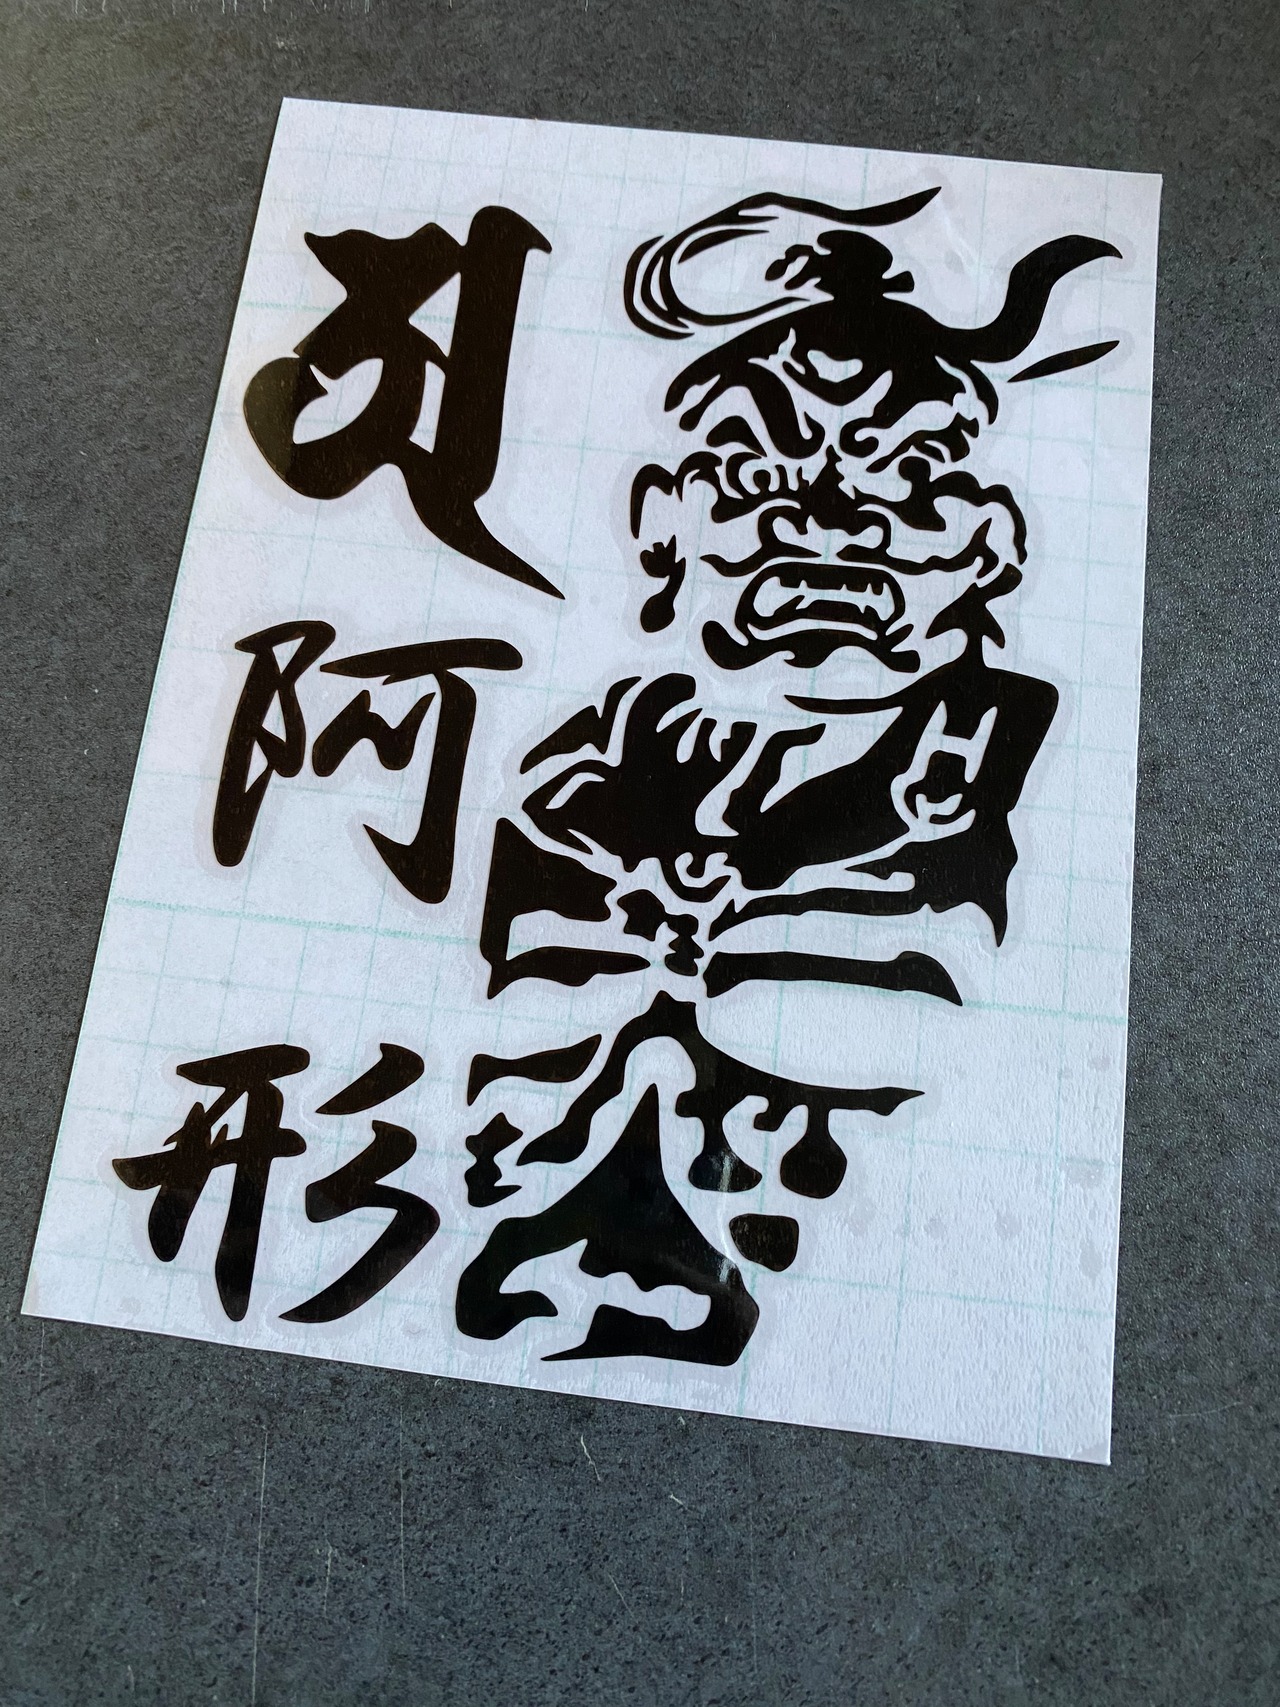 अ
阿
形